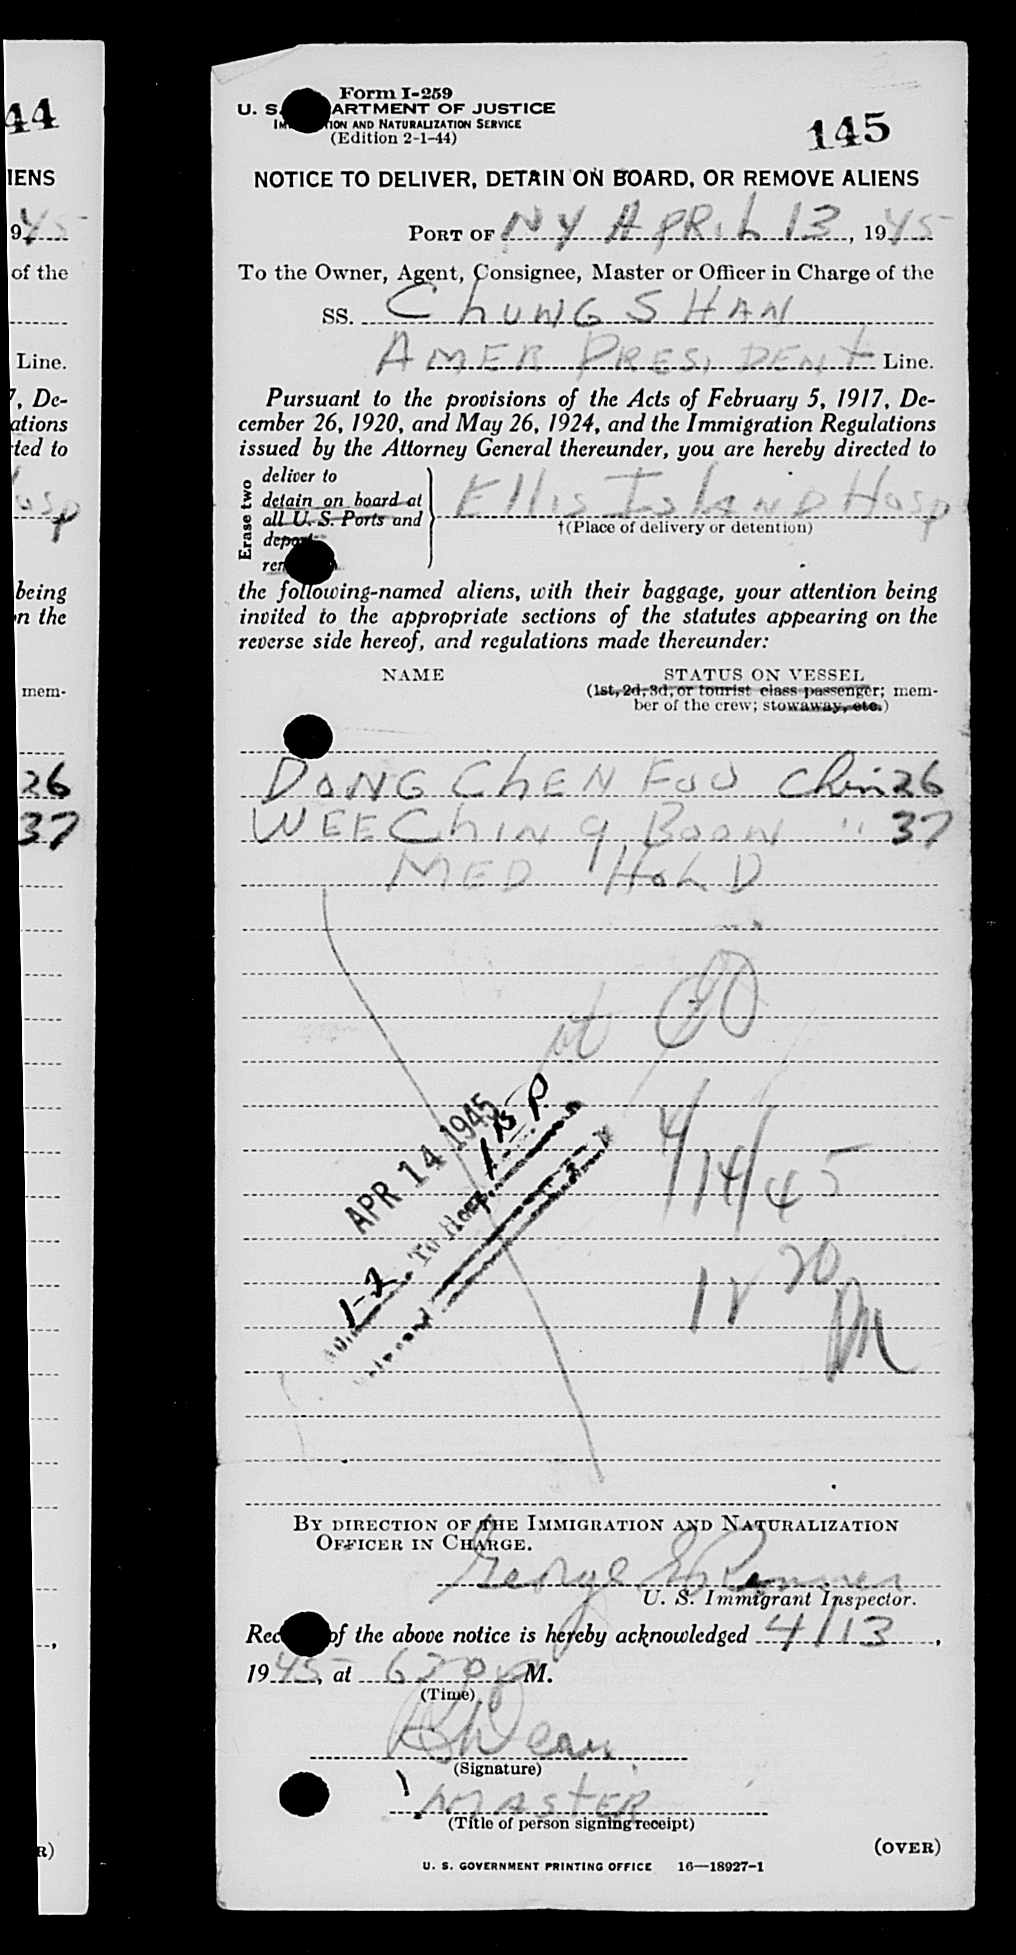 44
IENS
945
of the
Line.
7, De-
ations
ted to
Hosp
being
on the
mem-
26
37
,
R)
Form I-259
U. S. DEPARTMENT OF JUSTICE
IMMIGRATION AND NATURALIZATION SERVICE
(Edition 2-1-44)
145
NOTICE TO DELIVER, DETAIN ON BOARD, OR REMOVE ALIENS
PORT OF NY APRIL 13, 1945
To the Owner, Agent, Consignee, Master or Officer in Charge of the
SS. CHUNG SHAN
AMER PRESIDENT Line.
Pursuant to the provisions of the Acts of February 5, 1917, De-
cember 26, 1920, and May 26, 1924, and the Immigration Regulations
issued by the Attorney General thereunder, you are hereby directed to
Erase two
deliver to
detain on board at
all U. S. Ports and
deport
remove
Ellis Island Hosp
†(Place of delivery or detention)
the following-named aliens, with their baggage, your attention being
invited to the appropriate sections of the statutes appearing on the
reverse side hereof, and regulations made thereunder:
NAME STATUS ON VESSEL
(1st, 2d, 3d, or tourist class passenger; mem-
ber of the crew; stowaway, etc.)
DONG CHEN FOO Chin 26
WEE CHING BOON " 37
MED HOLD
at
APR 14 1945
To Hosp. 1 15 P.
1-2
4/14/45
12 20 PM
BY DIRECTION OF THE IMMIGRATION AND NATURALIZATION
OFFICER IN CHARGE.
George
U. S. Immigrant Inspector.
Receipt of the above notice is hereby acknowledged 4/13,
1945, at 620 P M.
(Time)
(Signature)
MASTER
(Title of person signing receipt)
(OVER)
U. S. GOVERNMENT PRINTING OFFICE 16—18927-1